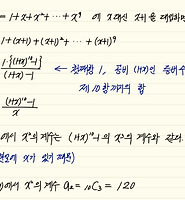 = 1+x+x²+⋯+x⁹ 에 x대신 x+1을 대입하면
1+(x+1)+(x+1)²+⋯+(x+1)⁹
1·{(1+x)¹⁰-1} / (1+x)-1 ← 첫째항 1, 공비 (1+x)인 등비수
제10항까지의 합
(1+x)¹⁰-1 / x
에서 x²의 계수는 (1+x)¹⁰-1의 x³의 계수와 같다.
(분모에 x가 있기 때문)
에서 x²의 계수 a₂ = ₁₀C₃ = 120